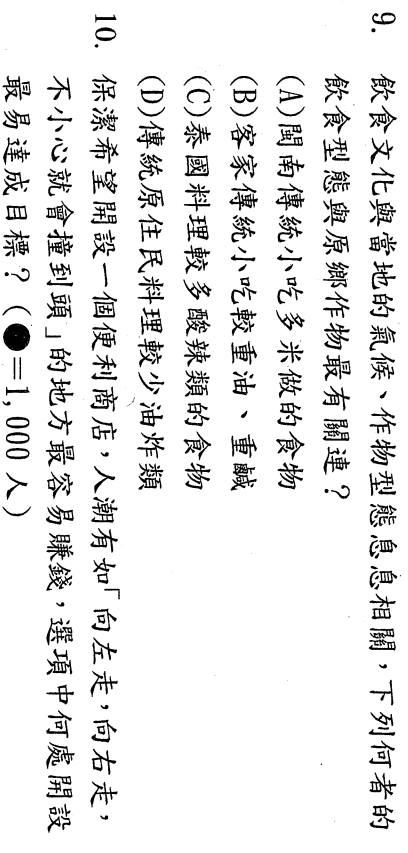 9. 飲食文化與當地的氣候、作物型態息息相關，下列何者的
飲食型態與原鄉作物最有關連？
(A)閩南傳統小吃多米做的食物
(B)客家傳統小吃較重油、重鹹
(C)泰國料理較多酸辣類的食物
(D)傳統原住民料理較少油炸類
10. 保潔希望開設一個便利商店，人潮有如「向左走，向右走，
不小心就會撞到頭」的地方最容易賺錢，選項中何處開設
最易達成目標？（●=1,000 人）